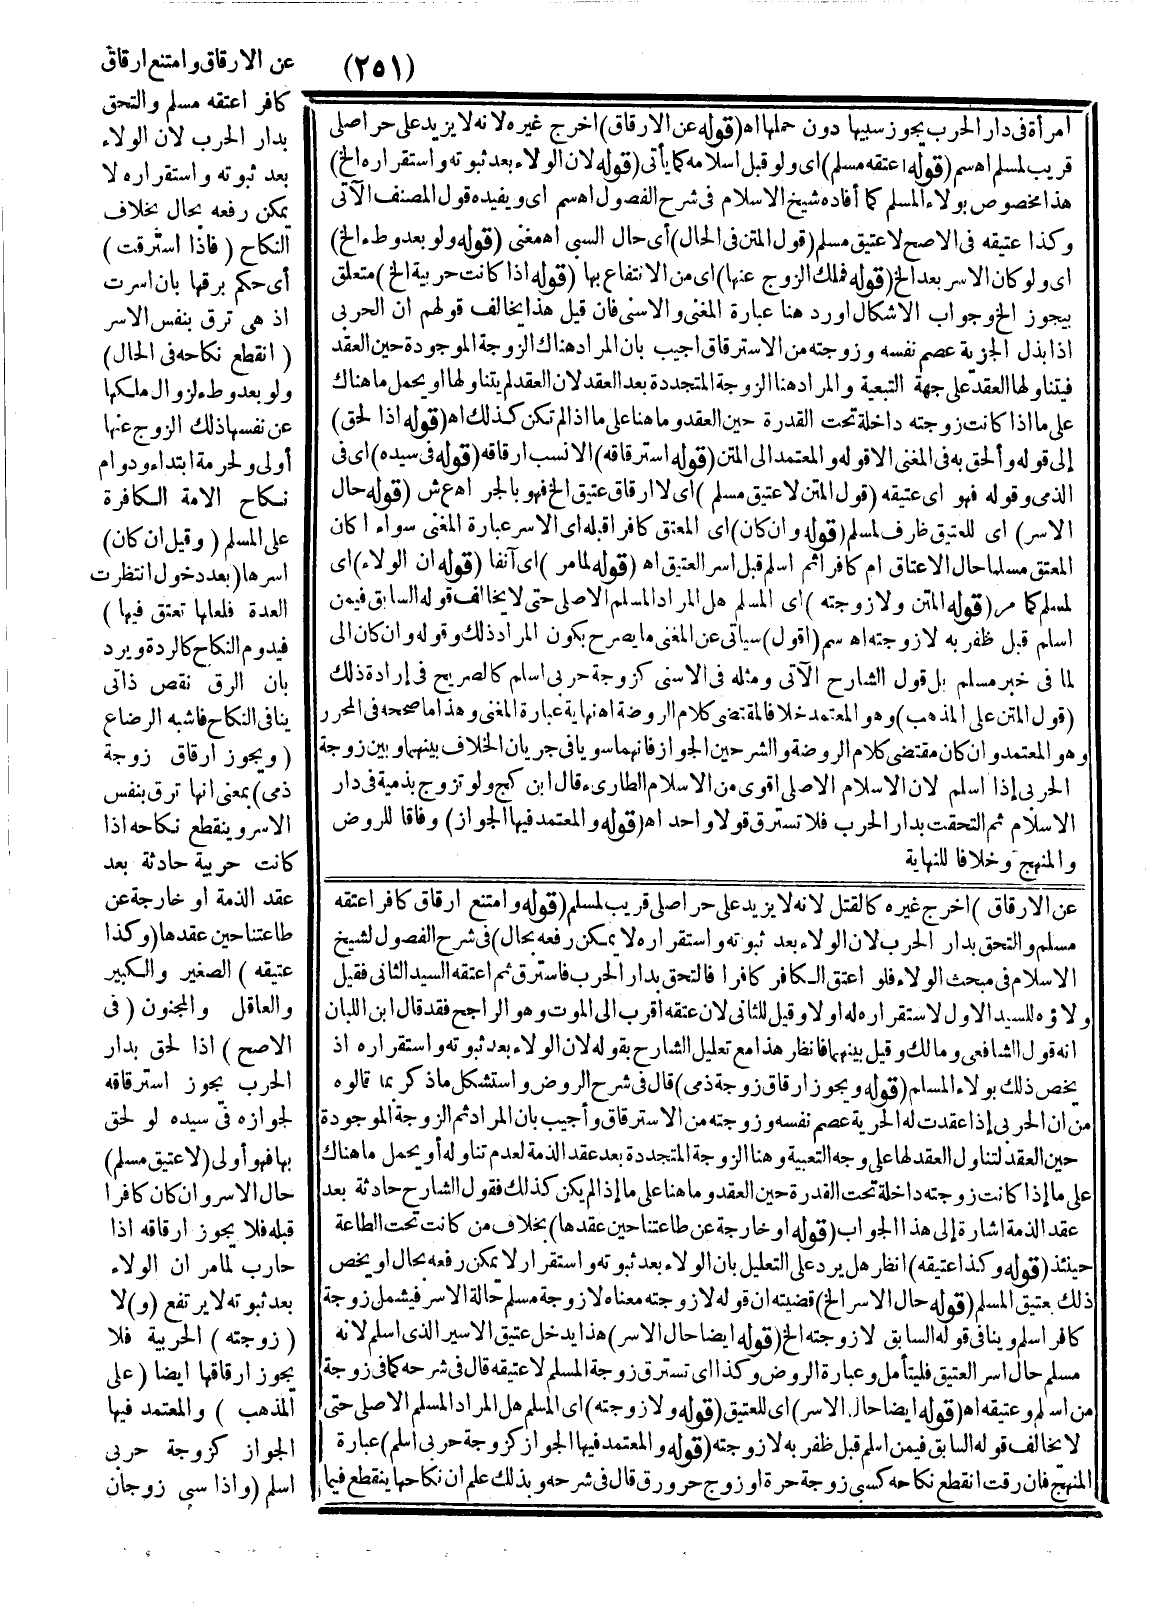 (٢٥١)
عن الارقاق وامتنع ارقاق
كافر اعتقه مسلم والتحق
بدار الحرب لان الولاء
بعد ثبوته واستقراره لا
يمكن رفعه بحال بخلاف
النكاح (فاذا استرقت)
أى حكم برقها بان اسرت
اذ هى ترق بنفس الاسر
(انقطع نكاحه فى الحال)
ولو بعد وطء لزوال ملكها
عن نفسها ذلك الزوج عنها
أولى ولحرمة ابتداء ودوام
نكاح الامة الكافرة
على المسلم (وقيل ان كان)
اسرها (بعد دخول انتظرت
العدة فلعلها تعتق فيها)
فيدوم النكاح كالردة ويرد
بان الرق نقص ذاتى
ينافى النكاح فاشبه الرضاع
(ويجوز ارقاق زوجة
ذمى) بمعنى انها ترق بنفس
الاسر وينقطع نكاحه اذا
كانت حربية حادثة بعد
عقد الذمة او خارجة عن
طاعتنا حين عقدها (وكذا
عتيقه) الصغير والكبير
والعاقل والمجنون (فى
الاصح) اذا لحق بدار
الحرب يجوز استرقاقه
لجوازه فى سيده لو لحق
بها فهو أولى (لا عتيق مسلم)
حال الاسر وان كان كافرا
قبله فلا يجوز ارقاقه اذا
حارب لمامر ان الولاء
بعد ثبوته لا يرتفع (و) لا
(زوجته) الحربية فلا
يجوز ارقاقها ايضا (على
المذهب) والمعتمد فيها
الجواز كزوجة حربى
اسلم (واذا سبى زوجان
امرأة فى دار الحرب يجوز سبيها دون حملها اه (قوله عن الارقاق) اخرج غيره لانه لا يزيد على حر اصلى
قريب لمسلم اه سم (قوله اعتقه مسلم) اى ولو قبل اسلامه كما يأتى (قوله لان الولاء بعد ثبوته واستقراره الخ)
هذا مخصوص بولاء المسلم كما أفاده شيخ الاسلام فى شرح الفصول اه سم اى ويفيده قول المصنف الآتى
وكذا عتيقه فى الاصح لا عتيق مسلم (قول المتن فى الحال) أى حال السبى اه مغنى (قوله ولو بعد وطء الخ)
اى ولو كان الاسر بعد الخ (قوله فملك الزوج عنها) اى من الانتفاع بها (قوله اذا كانت حربية الخ) متعلق
بيجوز الخ وجواب الاشكال اورد هنا عبارة المغنى والاسنى فان قيل هذا يخالف قولهم ان الحربى
اذا بذل الجزية عصم نفسه وزوجته من الاسترقاق اجيب بان المراد هناك الزوجة الموجودة حين العقد
فيتناولها العقد على جهة التبعية والمراد هنا الزوجة المتجددة بعد العقد لان العقد لم يتناولها او يحمل ما هناك
على ما اذا كانت زوجته داخلة تحت القدرة حين العقد وما هنا على ما اذا لم تكن كذلك اه (قوله اذا لحق)
إلى قوله وألحق به فى المغنى الا قوله والمعتمد الى المتن (قوله استرقاقه) الانسب ارقاقه (قوله فى سيده) اى فى
الذمى وقوله فهو اى عتيقه (قول المتن لا عتيق مسلم) اى لا ارقاق عتيق الخ فهو بالجر اه ع ش (قوله حال
الاسر) اى للعتيق ظرف لمسلم (قوله وان كان) اى المعتق كافرا قبله اى الاسر عبارة المغنى سواء اكان
المعتق مسلما حال الاعتاق ام كافرا ثم اسلم قبل اسر العتيق اه (قوله لمامر) اى آنفا (قوله ان الولاء) اى
لمسلم كما مر (قوله المتن ولا زوجته) اى المسلم هل المراد المسلم الاصلى حتى لا يخالف قوله السابق فيمن
اسلم قبل ظفر به لا زوجته اه سم (اقول) سياتى عن المغنى ما يصرح بكون المراد ذلك وقوله وان كان الى
لما فى خبر مسلم بل قول الشارح الآتى ومثله فى الاسنى كزوجة حربى اسلم كالصريح فى إرادة ذلك
(قول المتن على المذهب) وهو المعتمد خلافا لمقتضى كلام الروضة اه نهاية عبارة المغنى وهذا ما صححه فى المحرر
وهو المعتمد وان كان مقتضى كلام الروضة والشرحين الجواز فانهما سويا فى جريان الخلاف بينهما وبين زوجة
الحربى إذا اسلم لان الاسلام الاصلى اقوى من الاسلام الطارىء قال ابن كج ولو تزوج بذمية فى دار
الاسلام ثم التحقت بدار الحرب فلا تسترق قولا واحد اه (قوله والمعتمد فيها الجواز) وفاقا للروض
والمنهج وخلافا للنهاية
عن الارقاق) اخرج غيره كالقتل لانه لا يزيد على حر اصلى قريب لمسلم (قوله وامتنع ارقاق كافر اعتقه
مسلم والتحق بدار الحرب لان الولاء بعد ثبوته واستقراره لا يمكن رفعه بحال) فى شرح الفصول لشيخ
الاسلام فى مبحث الولاء فلو اعتق الكافر كافرا فالتحق بدار الحرب فاسترق ثم اعتقه السيد الثانى فقيل
ولاؤه للسيد الاول لاستقراره له اولا وقيل للثانى لان عتقه اقرب الى الموت وهو الراجح فقد قال ابن اللبان
انه قول الشافعى ومالك وقيل بينهما فانظر هذا مع تعليل الشارح بقوله لان الولاء بعد ثبوته واستقراره اذ
يخص ذلك بولاء المسلم (قوله ويجوز ارقاق زوجة ذمى) قال فى شرح الروض واستشكل ماذكر بما قالوه
من ان الحربى إذا عقدت له الحرية عصم نفسه وزوجته من الاسترقاق وأجيب بان المراد ثم الزوجة الموجودة
حين العقد لتناول العقد لها على وجه التعبية وهنا الزوجة المتجددة بعد عقد الذمة لعدم تناوله أو يحمل ما هناك
على ما إذا كانت زوجته داخلة تحت القدرة حين العقد وما هنا على ما إذا لم يكن كذلك فقول الشارح حادثة بعد
عقد الذمة اشارة إلى هذا الجواب (قوله او خارجة عن طاعتنا حين عقدها) بخلاف من كانت تحت الطاعة
حينئذ (قوله وكذا عتيقه) انظر هل يرد على التعليل بان الولاء بعد ثبوته واستقرار لا يمكن رفعه بحال او يخص
ذلك بعتيق المسلم (قوله حال الاسر الخ) قضيته ان قوله لا زوجته معناه لا زوجة مسلم حالة الاسر فيشمل زوجة
كافر اسلم وينافى قوله السابق لا زوجته الخ (قوله ايضا حال الاسر) هذا يدخل عتيق الاسير الذى اسلم لانه
مسلم حال اسر العتيق فليتأمل وعبارة الروض وكذا اى تسترق زوجة المسلم لا عتيقه قال فى شرحه كما فى زوجة
من اسلم وعتيقه اه (قوله ايضا حال الاسر) اى للعتيق (قوله ولا زوجته) اى المسلم هل المراد المسلم الاصلى حتى
لا يخالف قوله السابق فيمن اسلم قبل ظفر به لا زوجته (قوله والمعتمد فيها الجواز كزوجة حربى اسلم) عبارة
المنهج فان رقت انقطع نكاحه كسبى زوجة حرة او زوج حر ورق قال فى شرحه وبذلك علم ان نكاحها ينقطع فيما